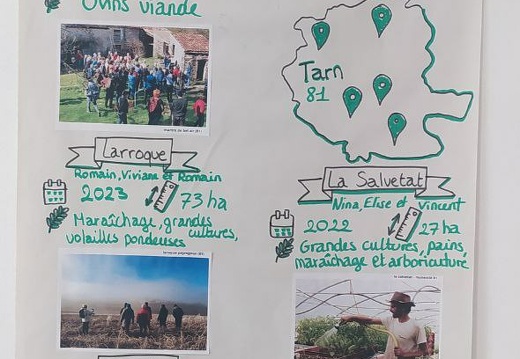 Ovins viande
Tarn
81
Larroque
Romain, Viviane et Romain
2023
73 ha
Maraîchage, grandes
cultures,
volailles pondeuses
La Salvetat
Nina, Elise et Vincent
2022
27 ha
Grandes cultures, pains,
maraîchage et arboriculture